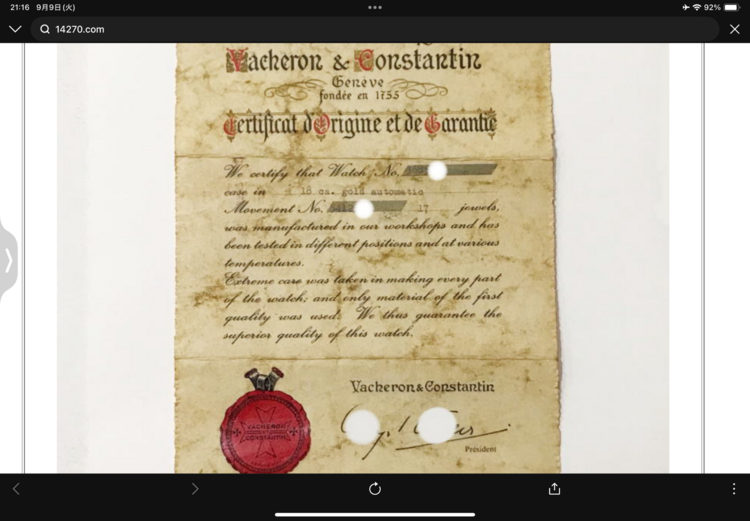 21:16 9月9日(火)
92%
14270.com
Vacheron & Constantin
Genève
fondée en 1755
Certificat d'Origine et de Garantie
We certify that Watch No.
case in 18 ca. gold automatic
Movement No. 17 jewels,
was manufactured in our workshops and has
been tested in different positions and at various
temperatures.
Extreme care was taken in making every part
of the watch; and only material of the first
quality was used. We thus guarantee the
superior quality of this watch.
Vacheron & Constantin
VACHERON
CONSTANTIN
Président